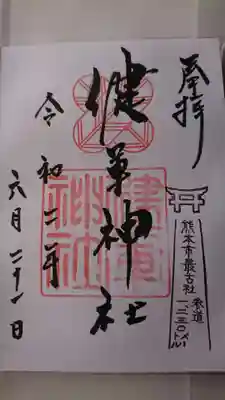 奉拝
熊本市最古社
参道
一、二三〇メートル
健軍神社
健軍神社
令和二年
六月二十一日